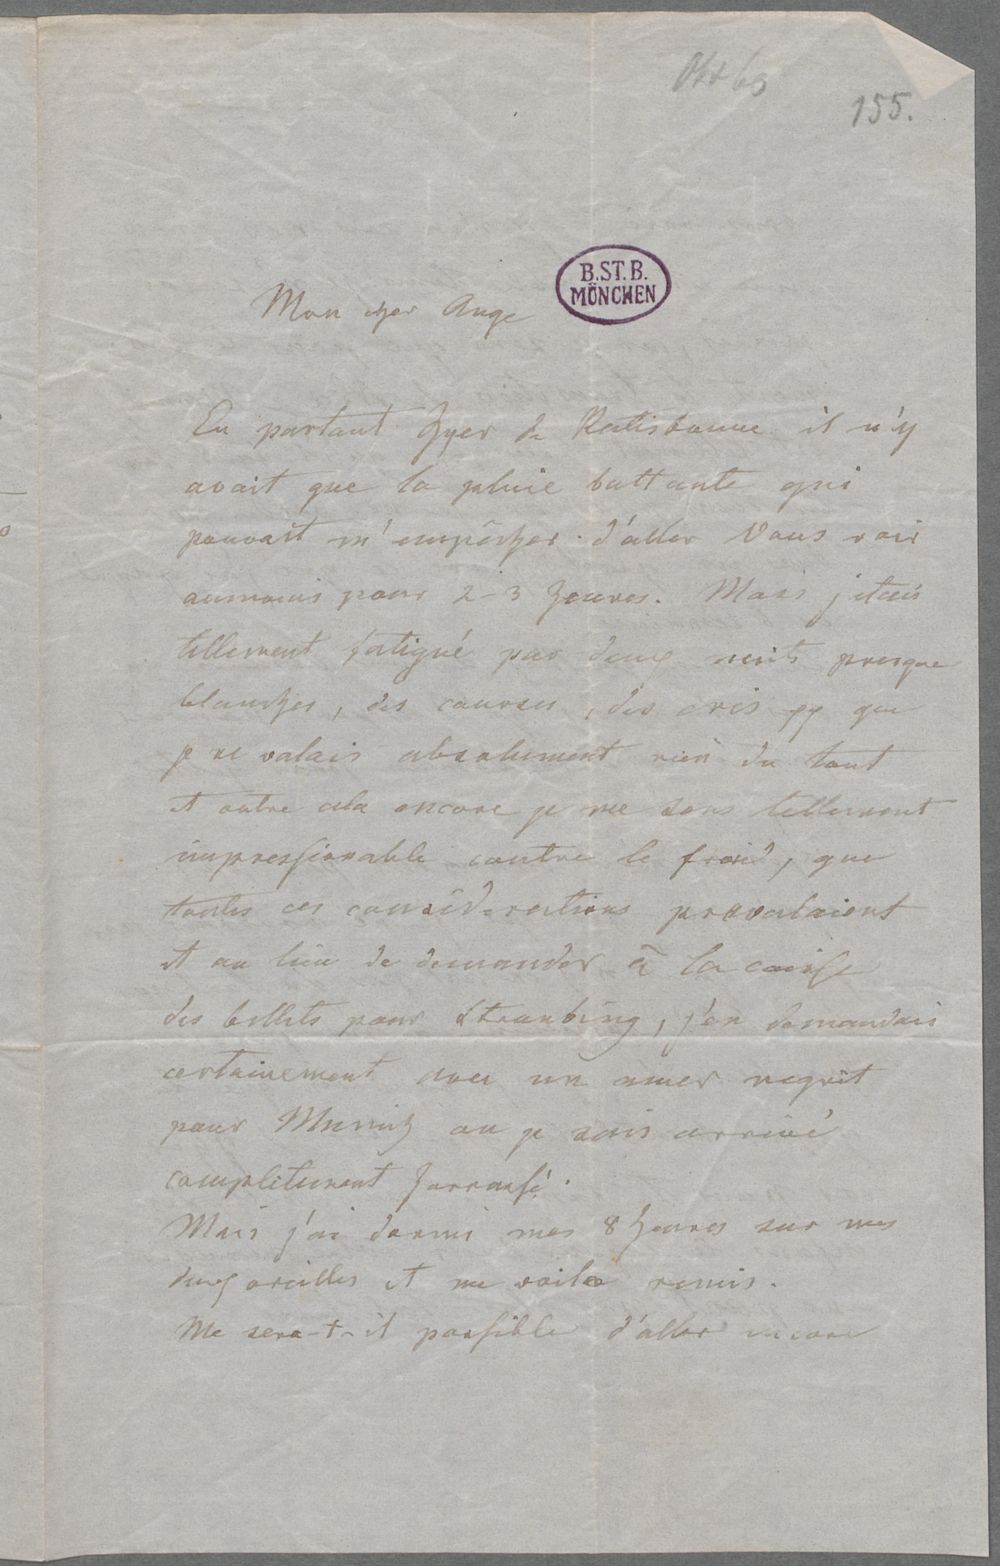 Okt 63
155.
B.ST.B.
MÜNCHEN
Mon cher Ange
En partant hyer de Ratisbonne il n'y
avait que la pluie battante qui
pouvait m'empêcher d'aller Vous voir
aumoins pour 2-3 heures. Mais j'etais
tellement fatigué par deux nuits presque
blanches, des courses, des cris pp que
je ne valais absolument rien du tout
et outre cela encore je me sens tellement
impressionable contre le froid, que
toutes ces considerations prevalaient
et au lieu de demander à la caisse
des billets pour Straubing, j'en demandais
certainement avec un amer regret
pour Munich ou je suis arrivé
completement harrassé.
Mais j'ai dormi mes 8 heures sur mes
deux oreilles et me voila remis.
Me sera-t-il possible d'aller encore